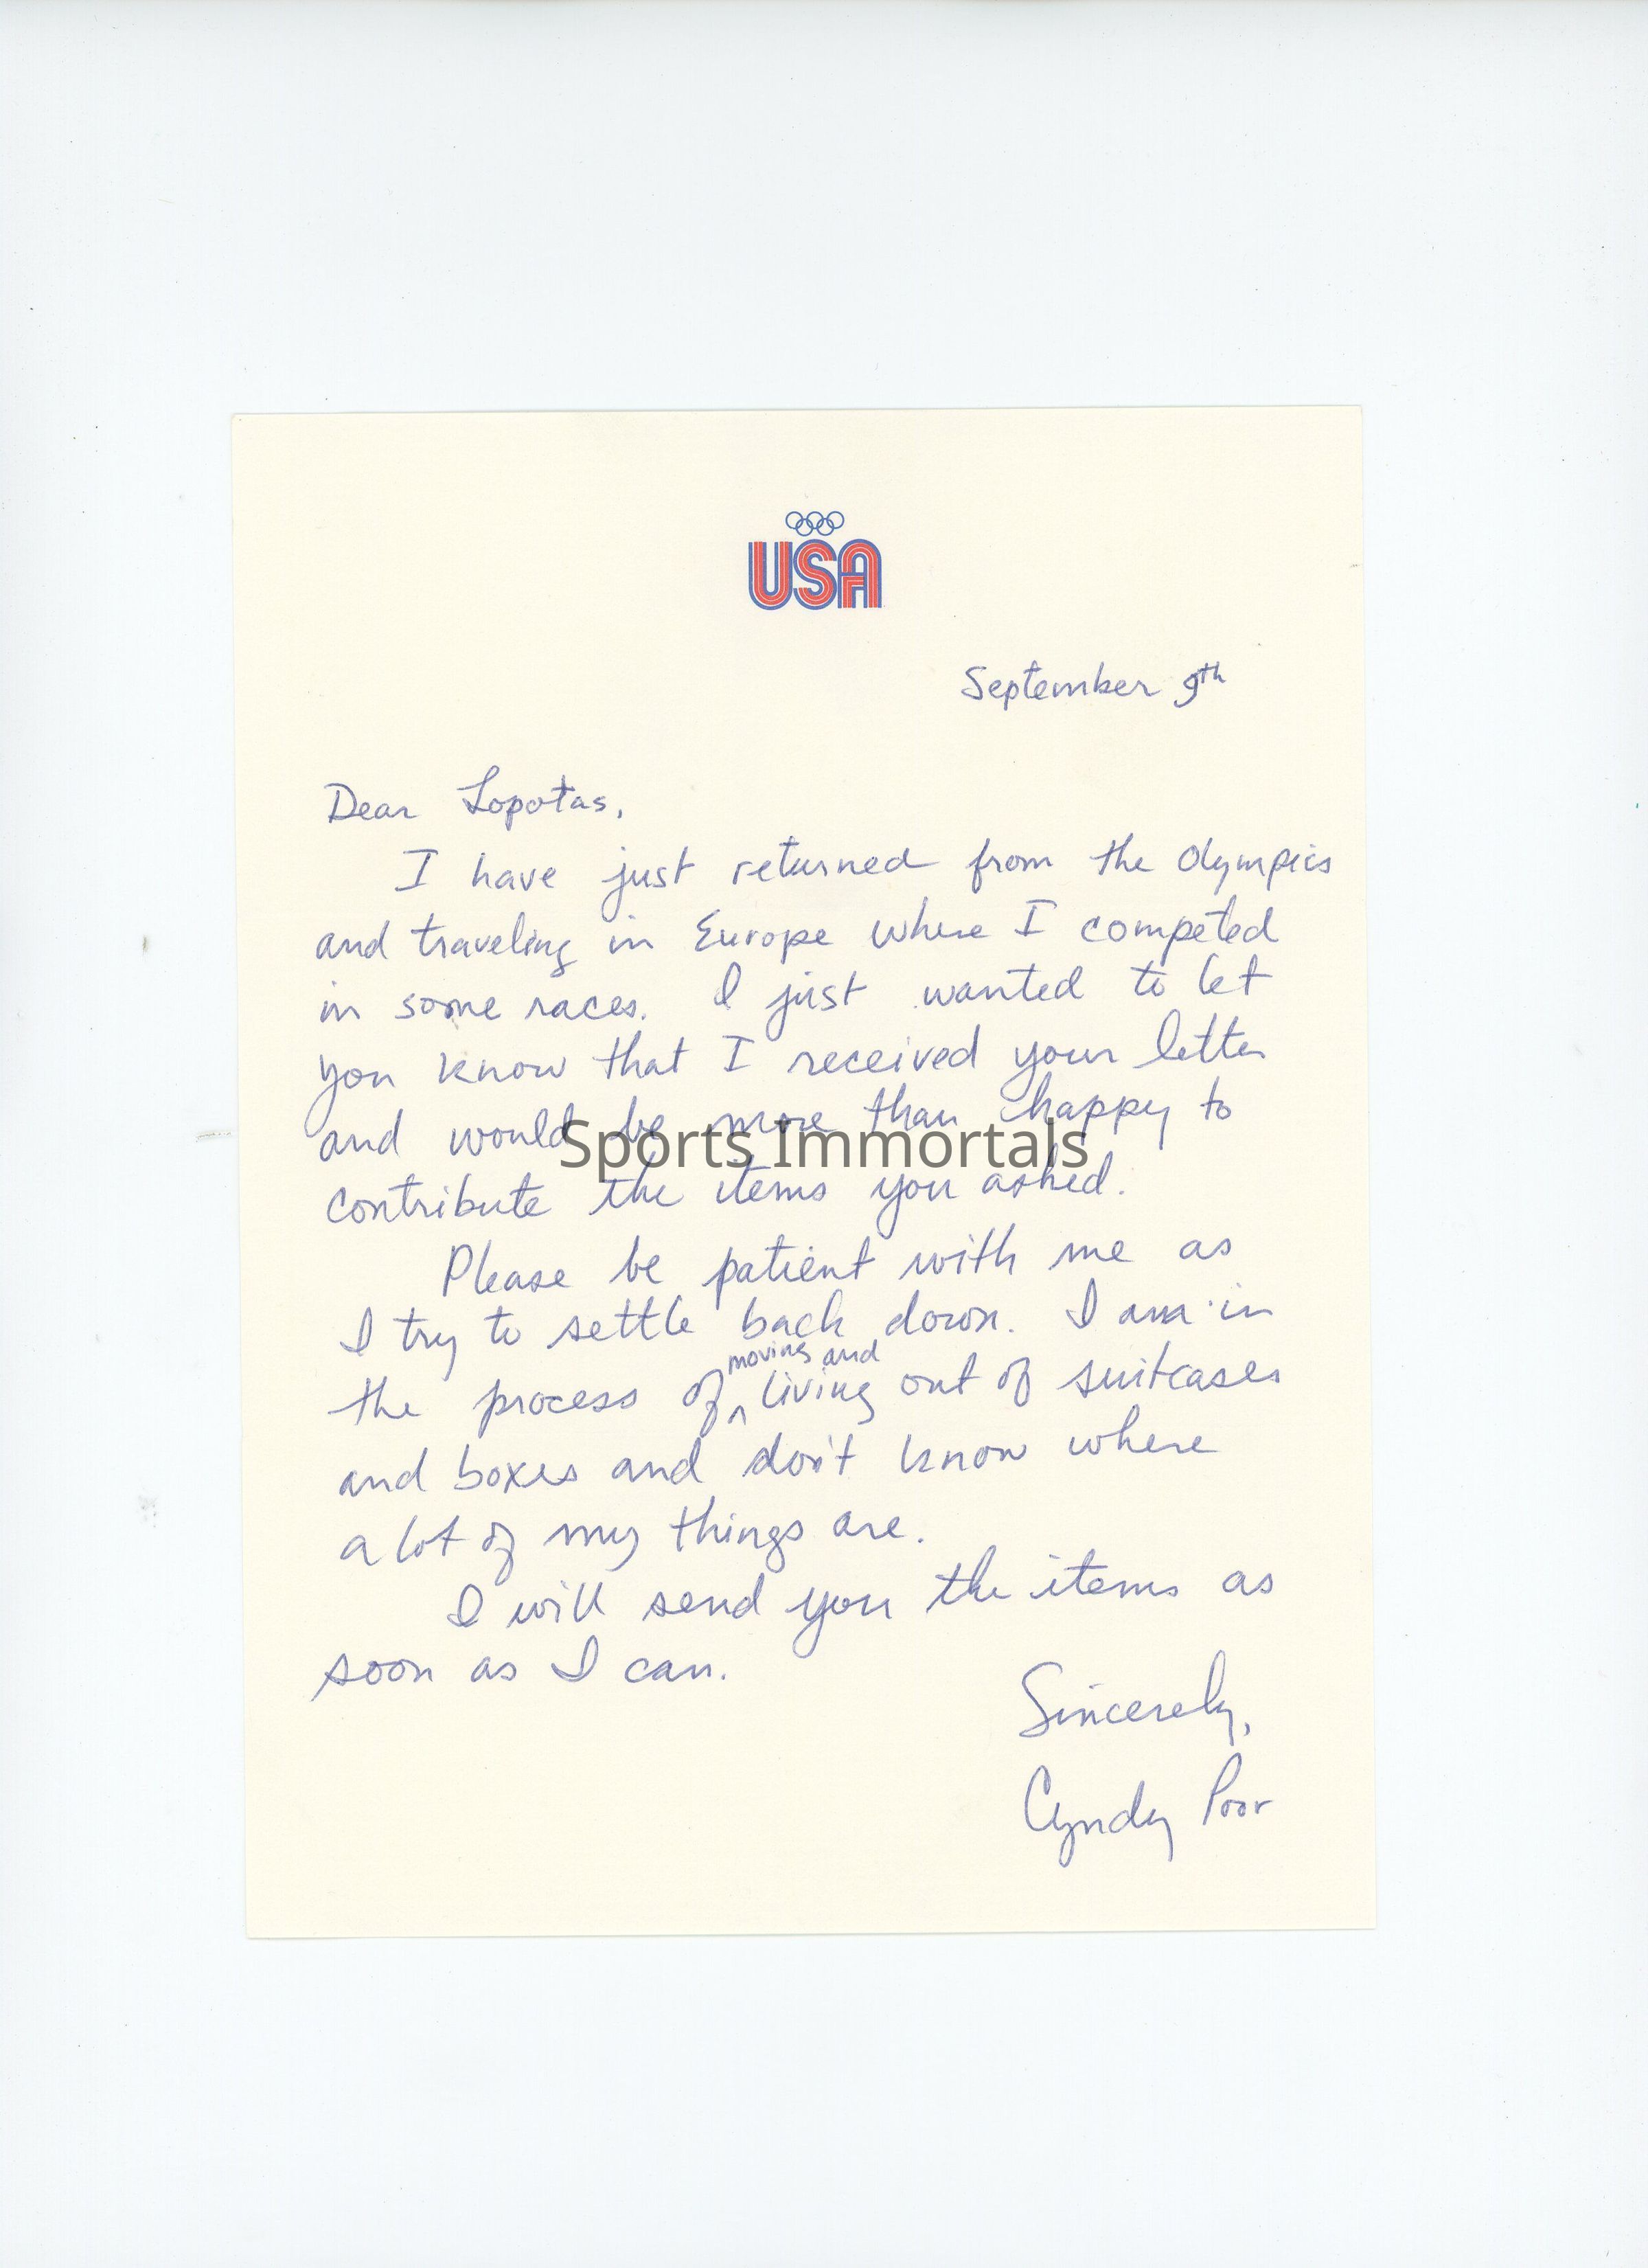 USA
September 9th
Dear Lopotas,
I have just returned from the Olympics
and traveling in Europe where I competed
in some races. I just wanted to let
you know that I received your letter
and would be more than happy to
Sports Immortals
contribute the items you asked.
Please be patient with me as
I try to settle back down. I am in
the process of ^ moving and living out of suitcases
and boxes and don't know where
a lot of my things are.
I will send you the items as
soon as I can.
Sincerely,
Cyndy Poor